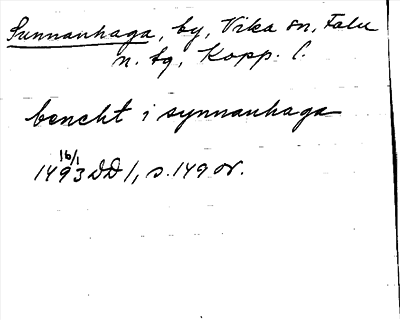 Sunnanhaga, by, Vika sn, Falu
n. tg, Kopp. l.
bencht i synnanhaga
16/1
1493 DD 1, s. 149 or.